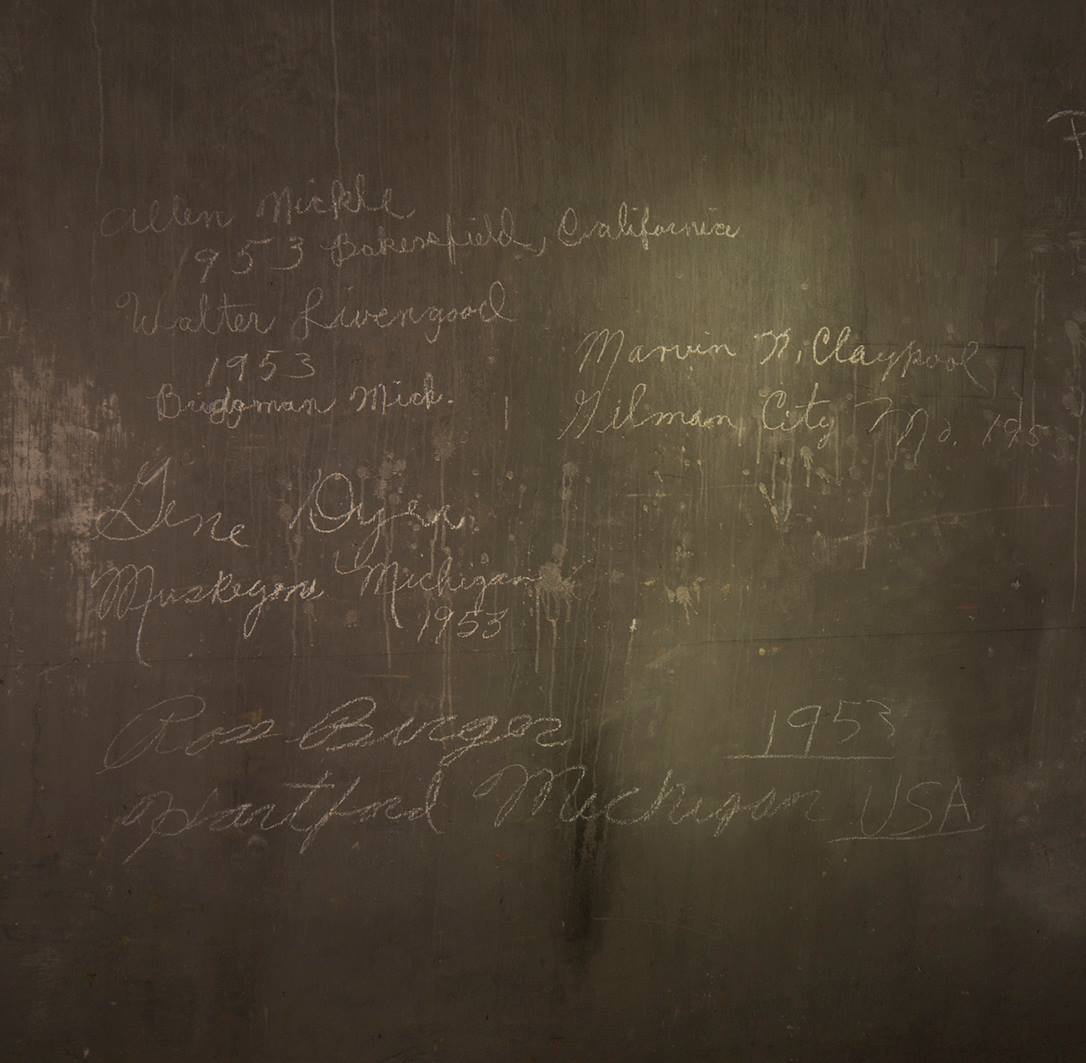 Allen Nickle
1953 Bakersfield, California
Walter Livengood
1953
Bridgman Mich.
Marvin N. Claypool
Gilman City Mo. 195
Gene Dyer
Muskegon Michigan
1953
Ross Burger 1953
Hartford Michigan USA